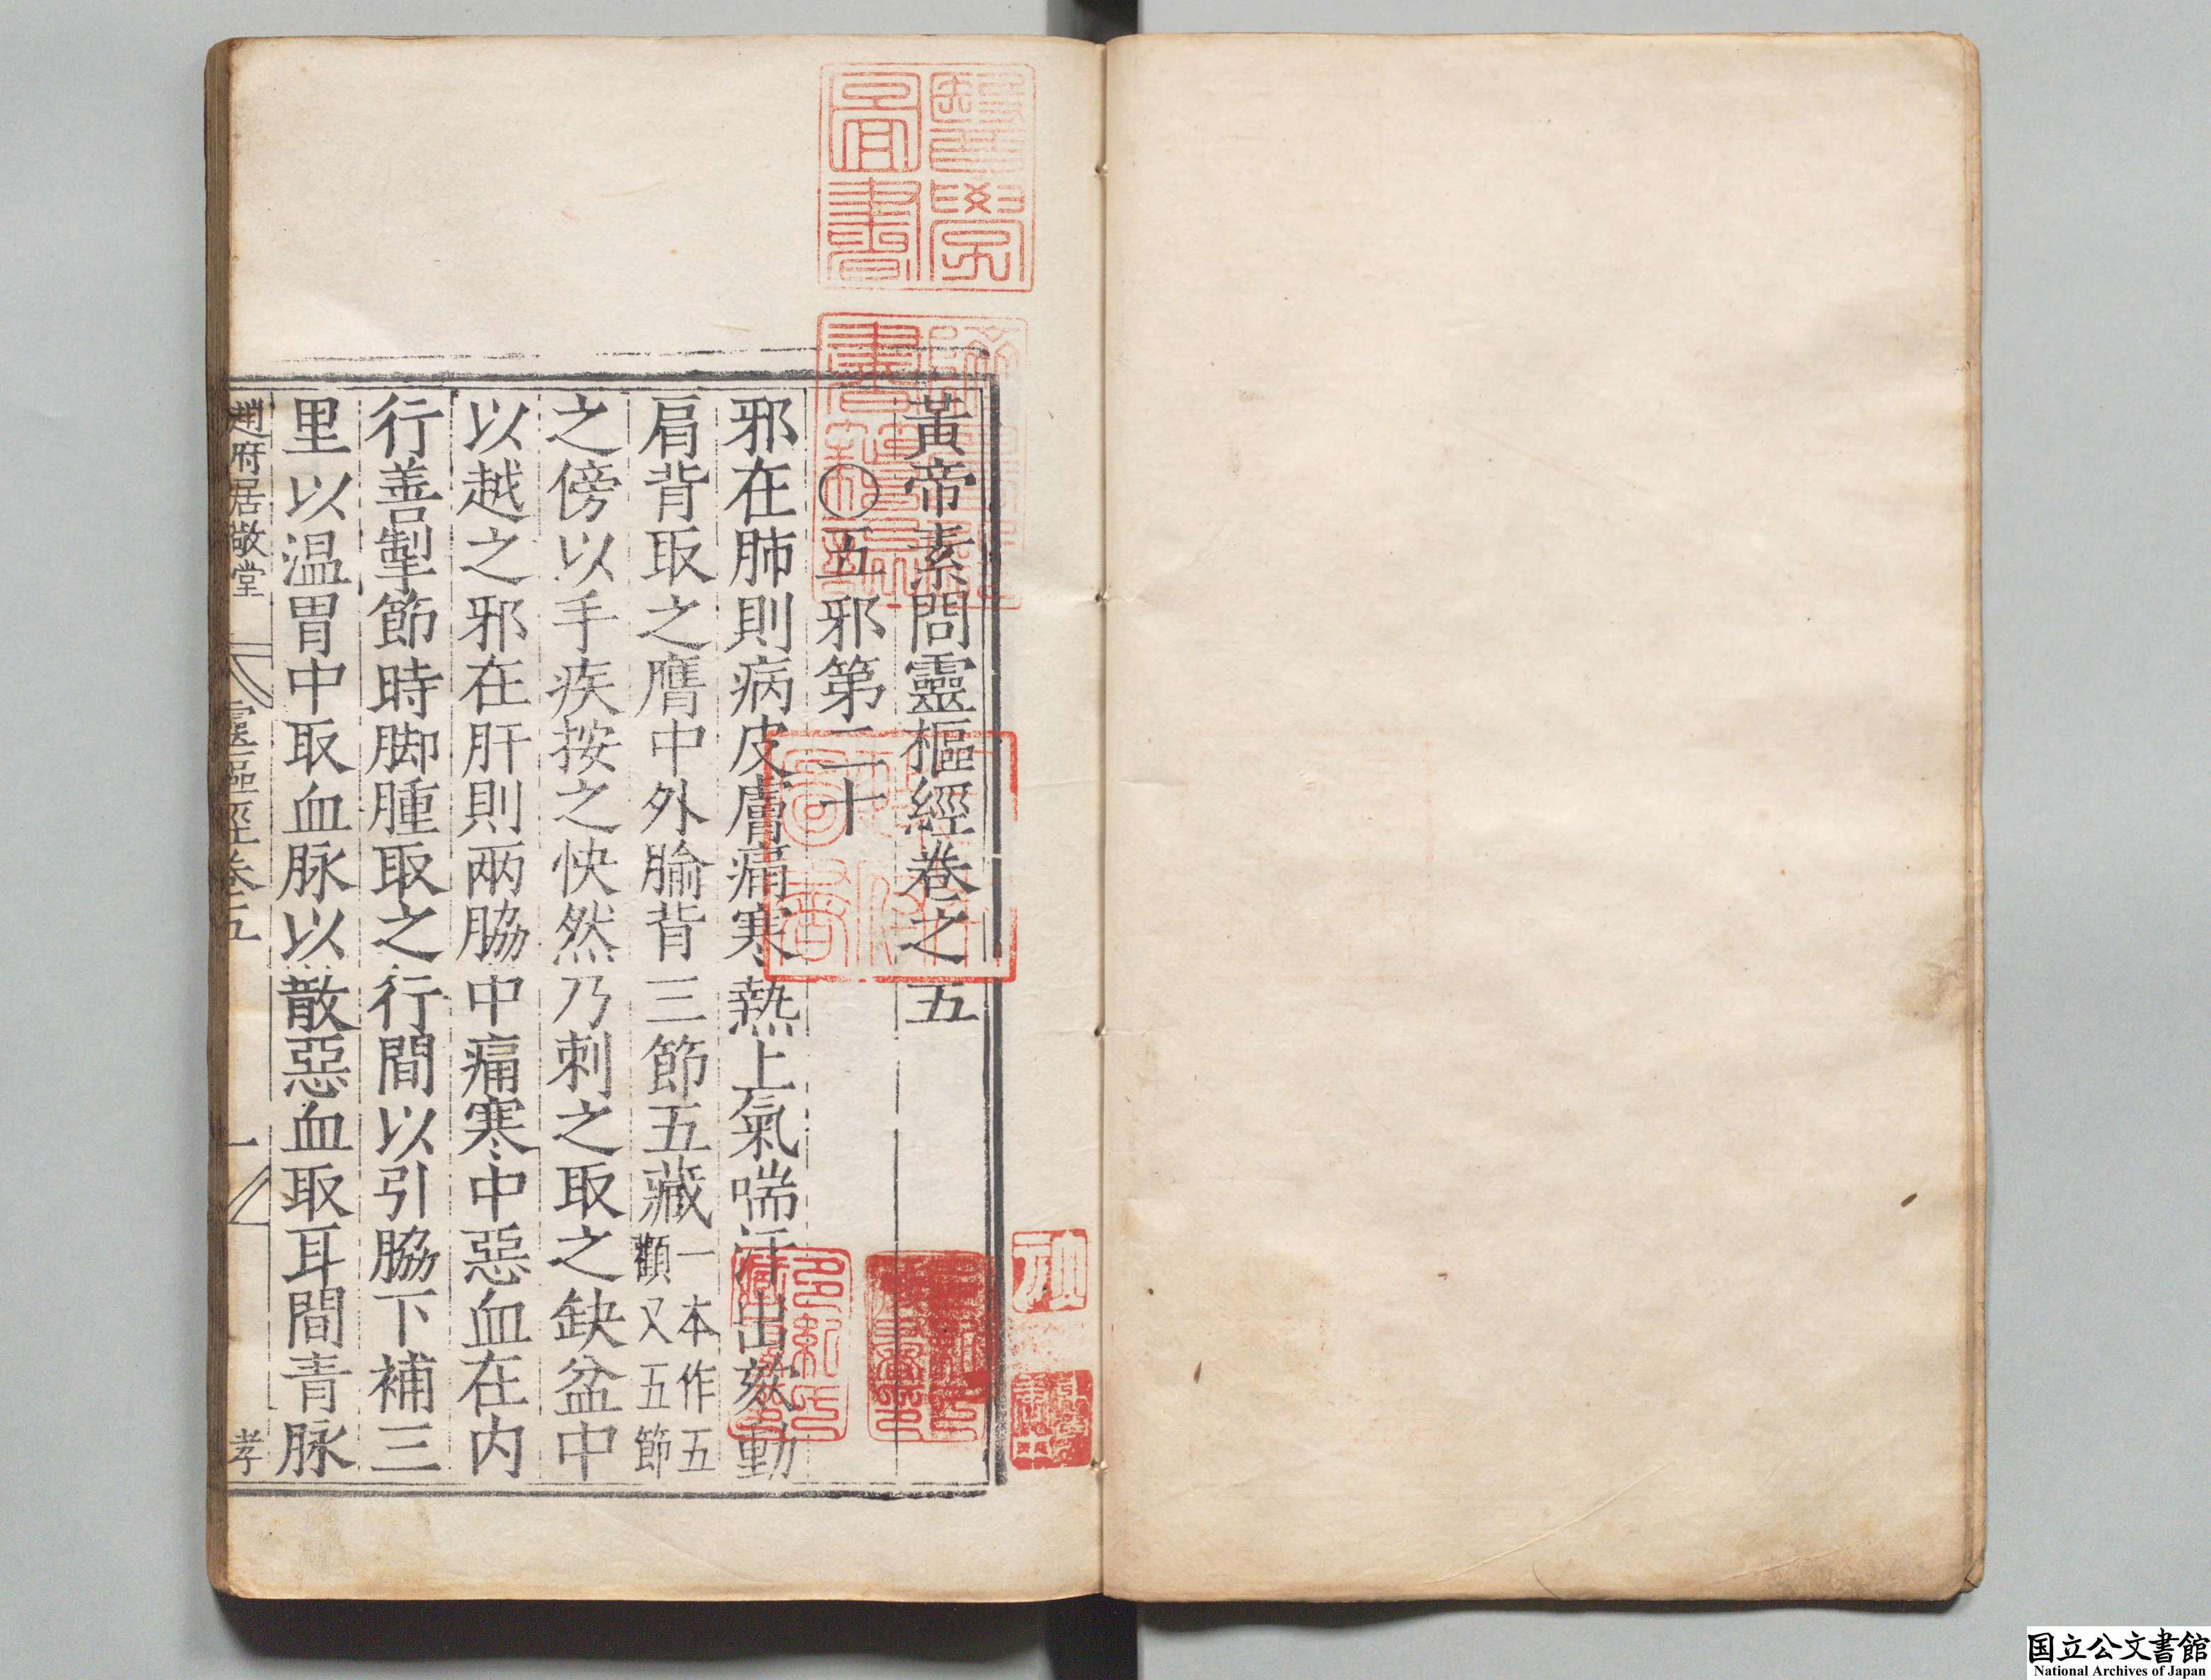 黃帝素問靈樞經卷之五
○五邪第二十
邪在肺則病皮膚痛寒熱上氣喘汗出欬動
肩背取之膺中外腧背三節五藏一本作五
顀又五節
之傍以手疾按之快然乃刺之取之缺盆中
以越之邪在肝則兩脇中痛寒中惡血在內
行善掣節時脚腫取之行間以引脇下補三
里以温胃中取血脉以散惡血取耳間青脉
趙府居敬堂
靈樞經卷五
一
孝
醫學圖書
多紀氏藏書印
国立公文書館
National Archives of Japan